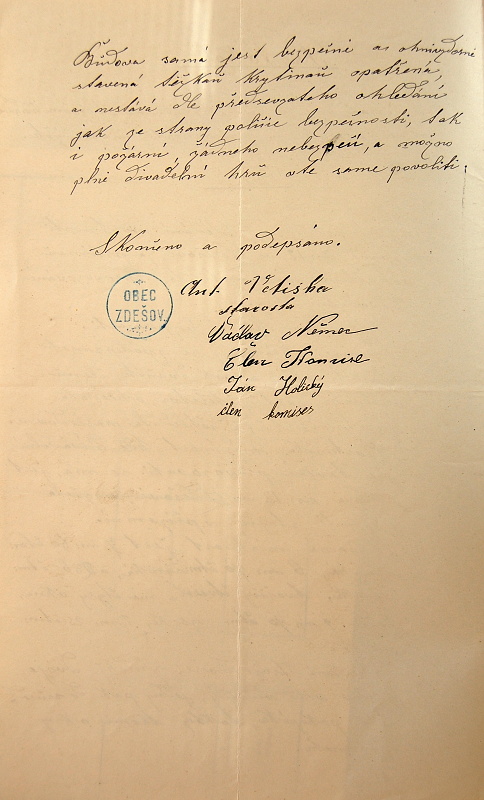 Budova samá jest bezpečně a ohnivzdorně
stavená těžkau krytinau opatřená,
a nestává dle předsevzatého ohledání
jak ze strany policie bezpečnosti, tak
i požární, žádného nebezpečí, a možno
plně divadelní hru v té same povoliti.
Skončeno a podepsáno.
OBEC
ZDEŠOV.
Ant
starosta
Václav Němec
Člen Komise
Ján Holický
člen komises